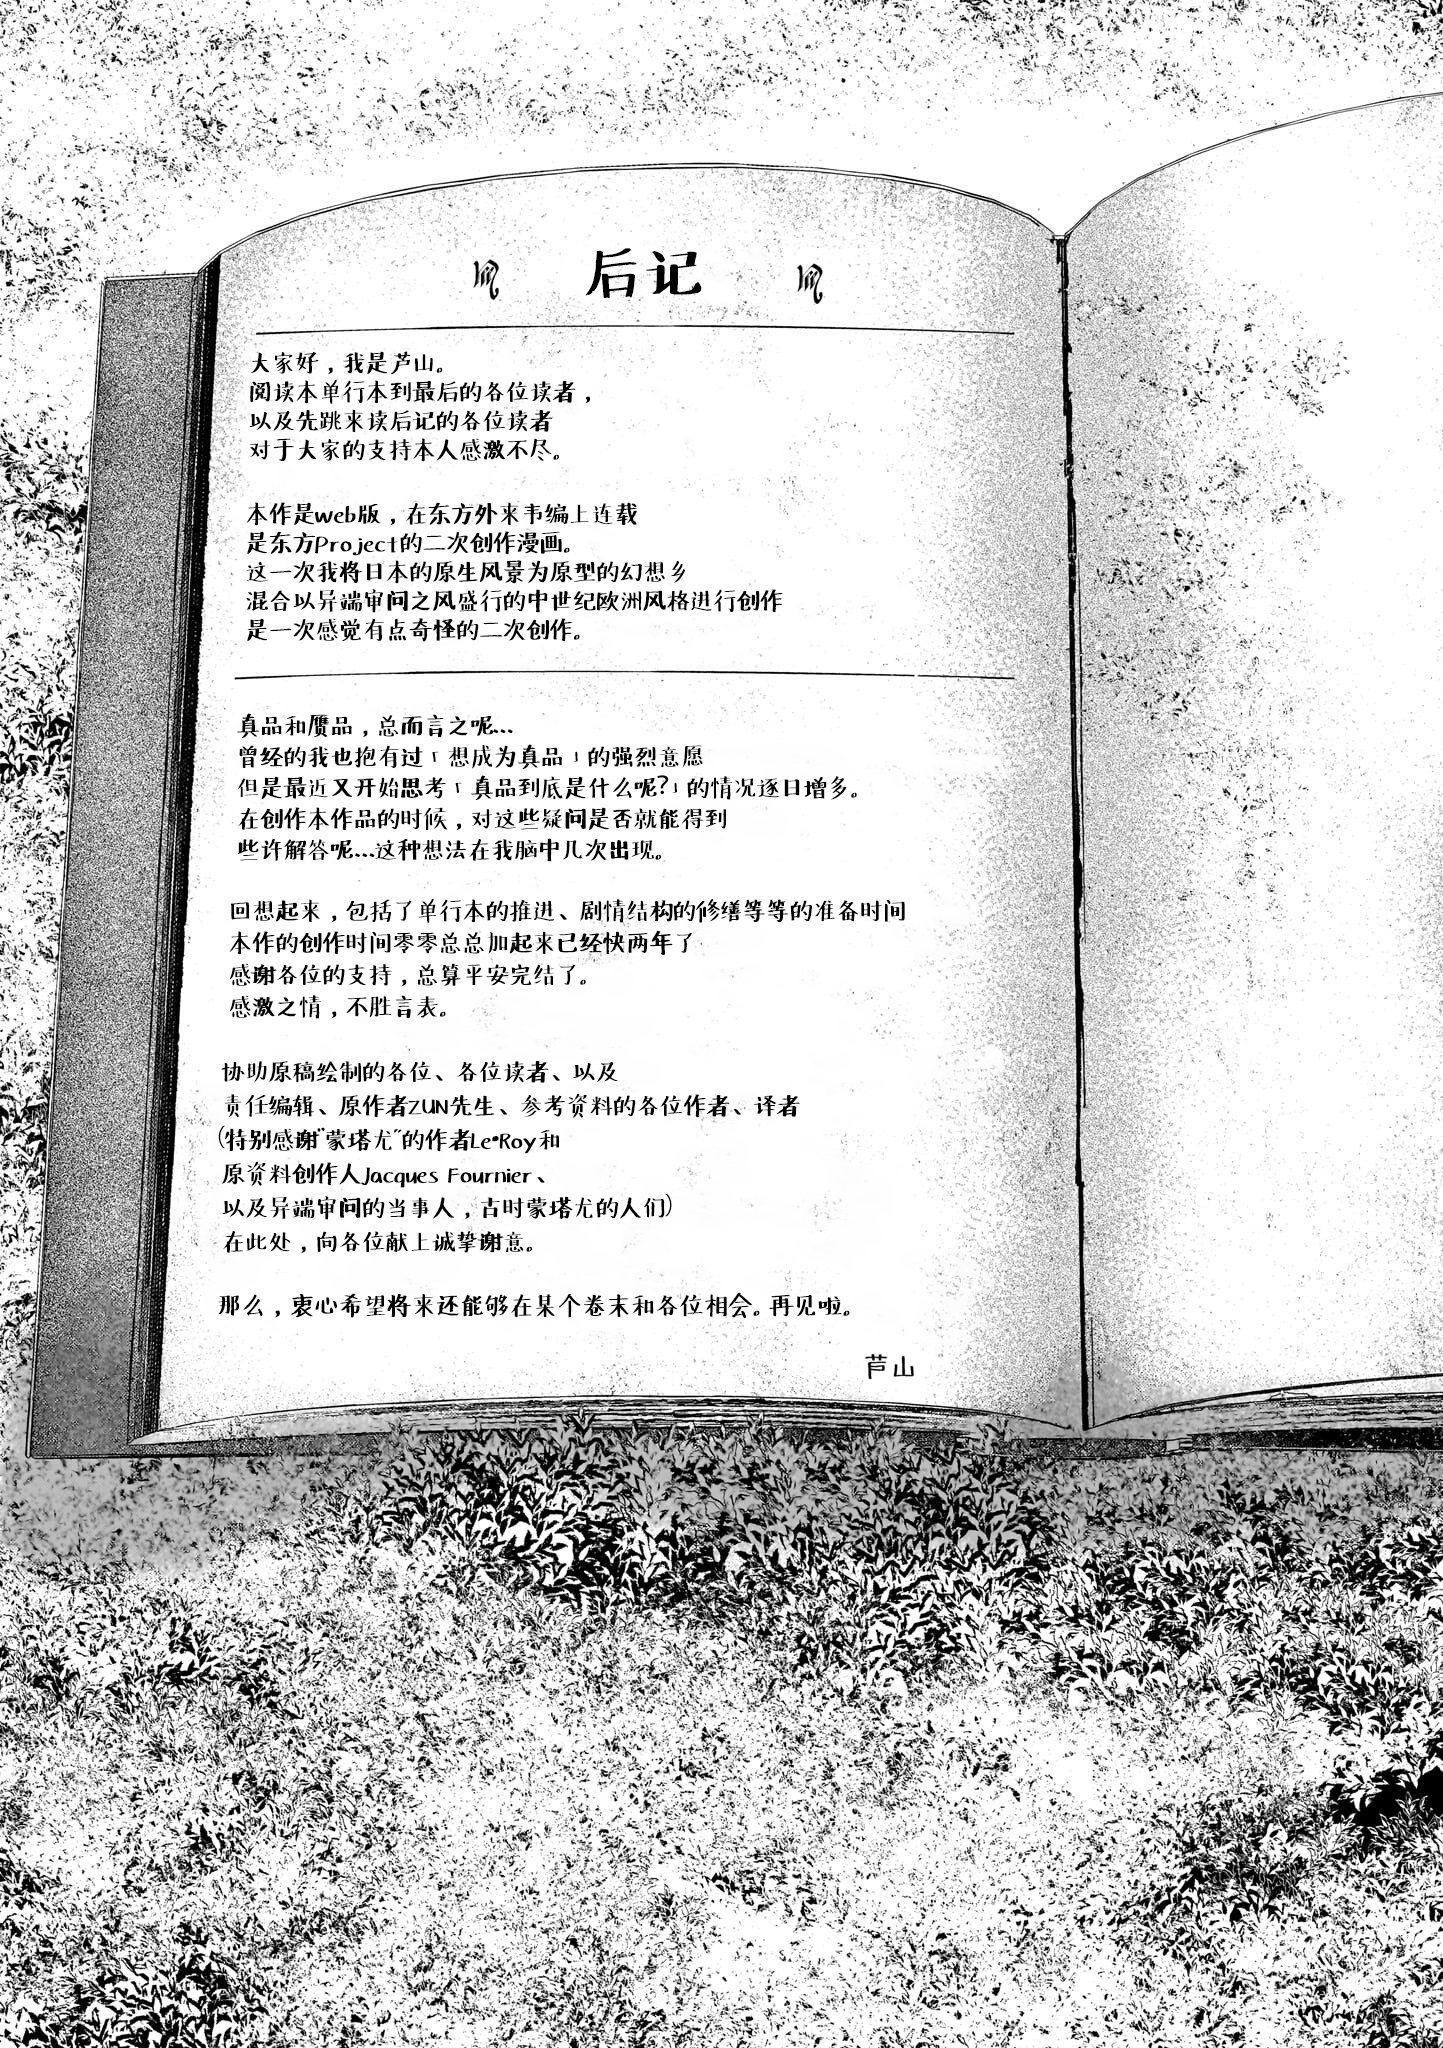 后记
大家好，我是芦山。
阅读本单行本到最后的各位读者，
以及先跳来读后记的各位读者
对于大家的支持本人感激不尽。
本作是web版，在东方外来韦编上连载
是东方Project的二次创作漫画。
这一次我将日本的原生风景为原型的幻想乡
混合以异端审问之风盛行的中世纪欧洲风格进行创作
是一次感觉有点奇怪的二次创作。
真品和赝品，总而言之呢...
曾经的我也抱有过「想成为真品」的强烈意愿
但是最近又开始思考「真品到底是什么呢?」的情况逐日增多。
在创作本作品的时候，对这些疑问是否就能得到
些许解答呢...这种想法在我脑中几次出现。
回想起来，包括了单行本的推进、剧情结构的修缮等等的准备时间
本作的创作时间零零总总加起来已经快两年了
感谢各位的支持，总算平安完结了。
感激之情，不胜言表。
协助原稿绘制的各位、各位读者、以及
责任编辑、原作者ZUN先生、参考资料的各位作者、译者
(特别感谢"蒙塔尤"的作者Le•Roy和
原资料创作人Jacques Fournier、
以及异端审问的当事人，古时蒙塔尤的人们)
在此处，向各位献上诚挚谢意。
那么，衷心希望将来还能够在某个卷末和各位相会。再见啦。
芦山